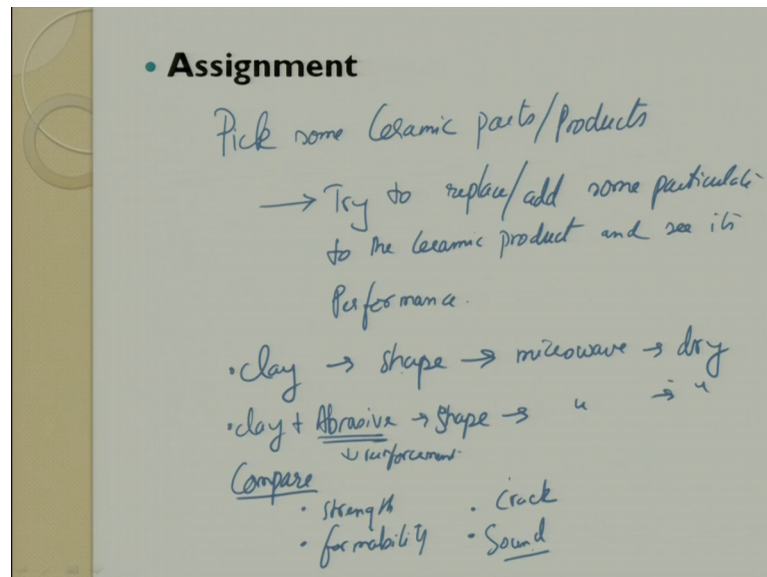 • Assignment
Pick some Ceramic parts/Products
→ Try to replace/add some particulate
to the Ceramic product and see its
Performance.
• clay → shape → microwave → dry
• clay + Abrasive → shape → " → "
↓ reinforcement
Compare
• strength • Crack
• formability • Sound